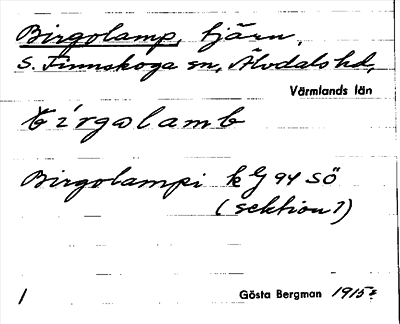 Birgolamp, tjärn,
S. Finnskoga sn, Älvdals hd,
Värmlands län
bìrgolamb
Birgolampi k G 94 SÖ
(sektion 1)
1 Gösta Bergman 1915